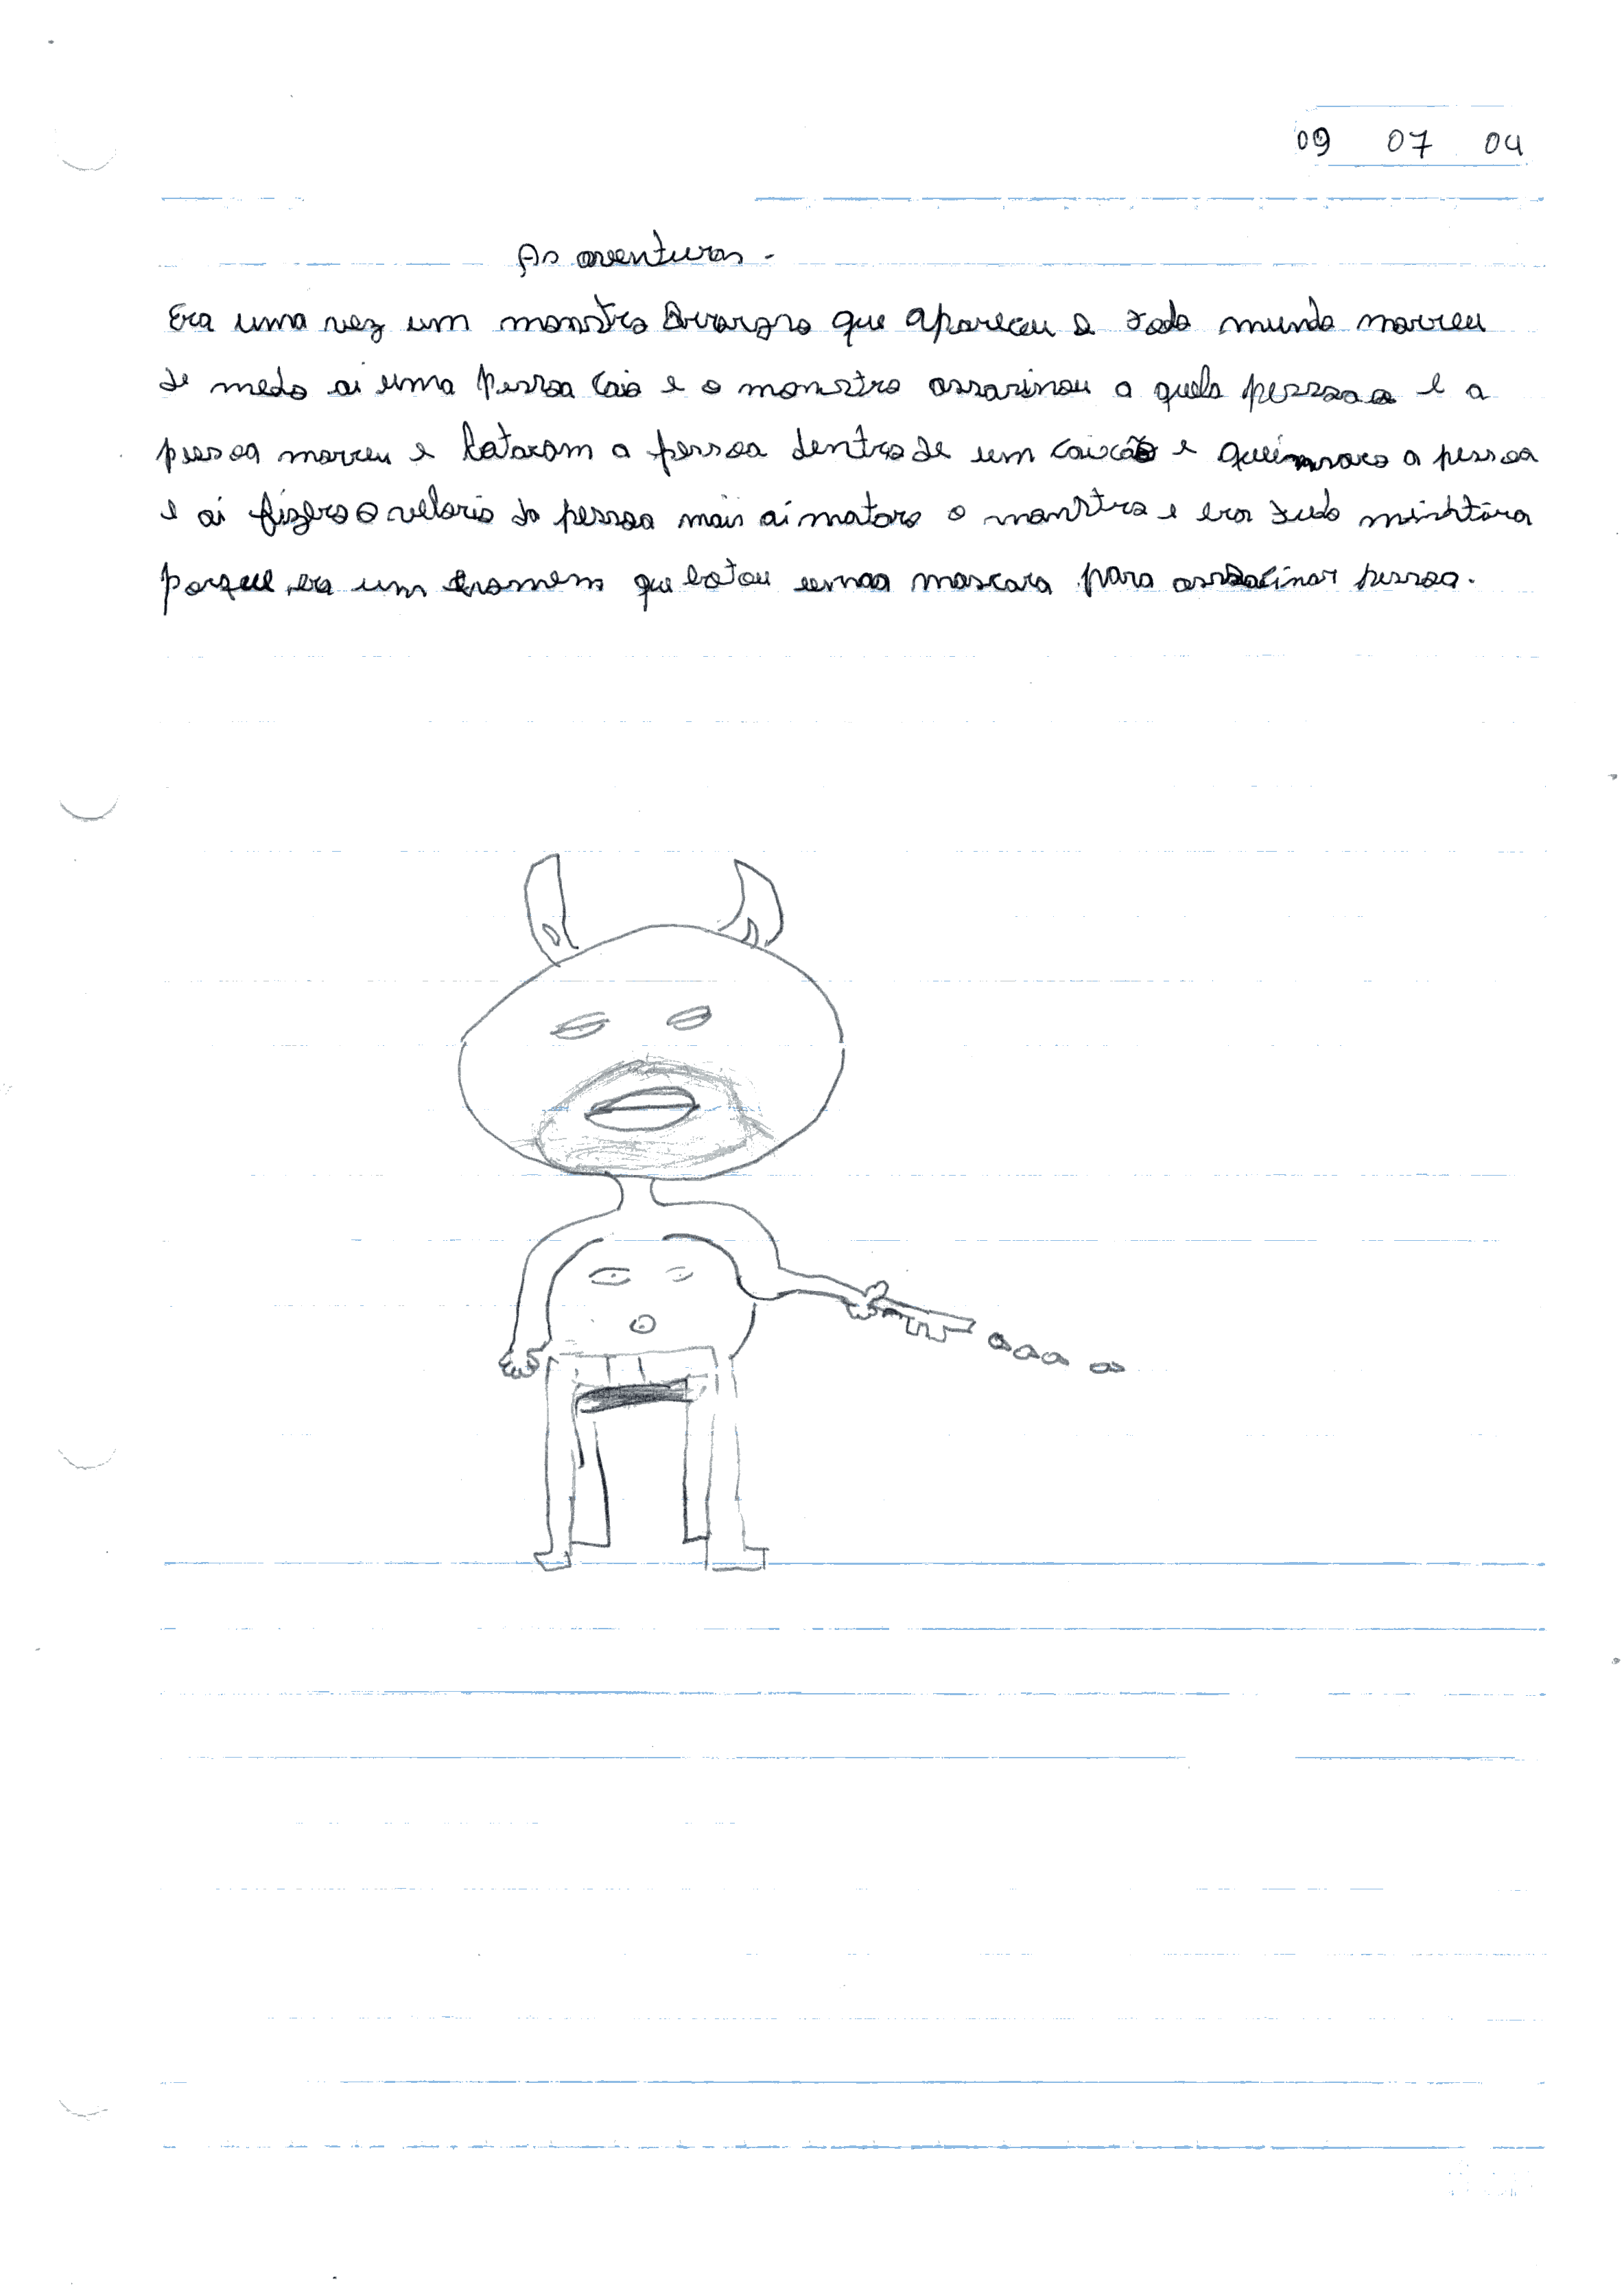 09 07 04
As aventuras -
Era uma vez um monstro que apareceu todo mundo morreu
de medo ai uma pessoa caio e o monstro assasinou a quela pessoa e a
pessoa morreu e botaram a pessoa dentro de um caixão e a pessoa
e ai fizero o velorio da pessoa mais ai mataro o monstro e era tudo
porque era um que botou uma mascara para pessoa.